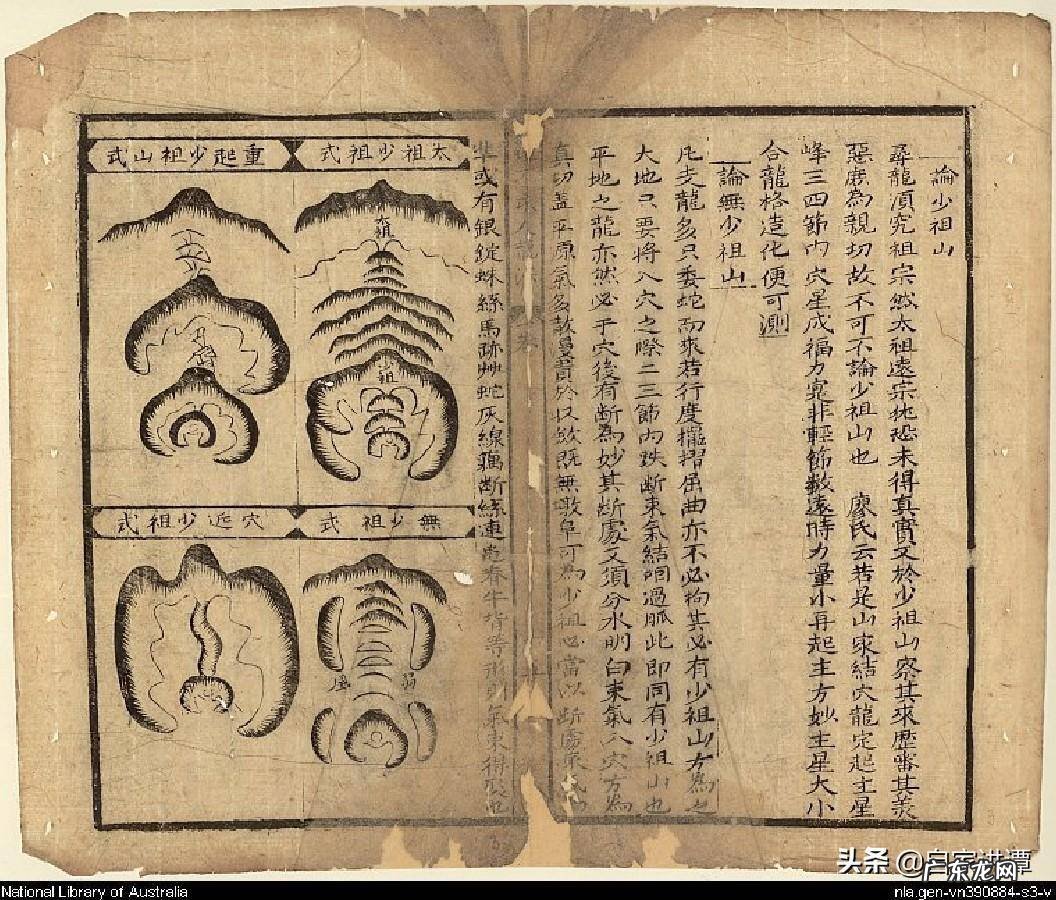 論少祖山
尋龍湏究祖宗然太祖遠宗它恐未得真實又於少祖山察其來歷審其美
惡庶為親切故不可不論少祖山也 廖氏云若是山家結穴龍定起主星
峰三四節內穴星成福力寔非輕節数遠時力量小再起主方妙主星大小
合龍格造化便可測
論無少祖山
凡支龍多只委蛇而來若行度擺摺屈曲亦不必拘其必有少祖山方為之
大地只要將入穴之際二三節內跌断束氣結咽過脈此即同有少祖山也
平地之龍亦然必于穴後有断為妙其断處又須分水明白束氣入穴方為
真切盖平原氣多散 於 既無墩阜可為少祖必當以断處束氣
或有銀錠蛛絲馬跡艸蛇灰線藕断絲連 牛 等形則氣束得
太祖少祖式
重起少祖山式
太祖
少祖
無少祖式
穴近少祖式
National Library of Australia
头条 @自家讲谭
广东龙网
nla.gen-vn390884-s3-v